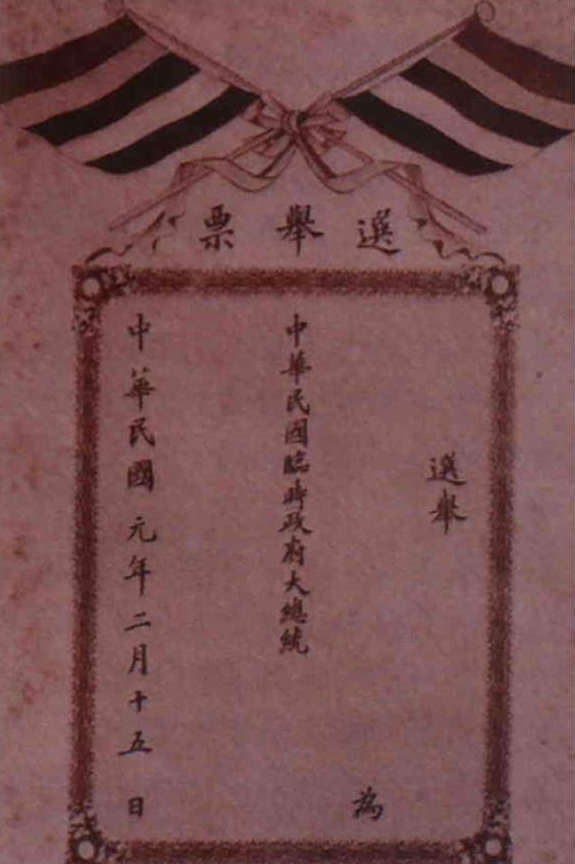 選舉票
選舉
為
中華民國臨時政府大總統
中華民國元年二月十五日